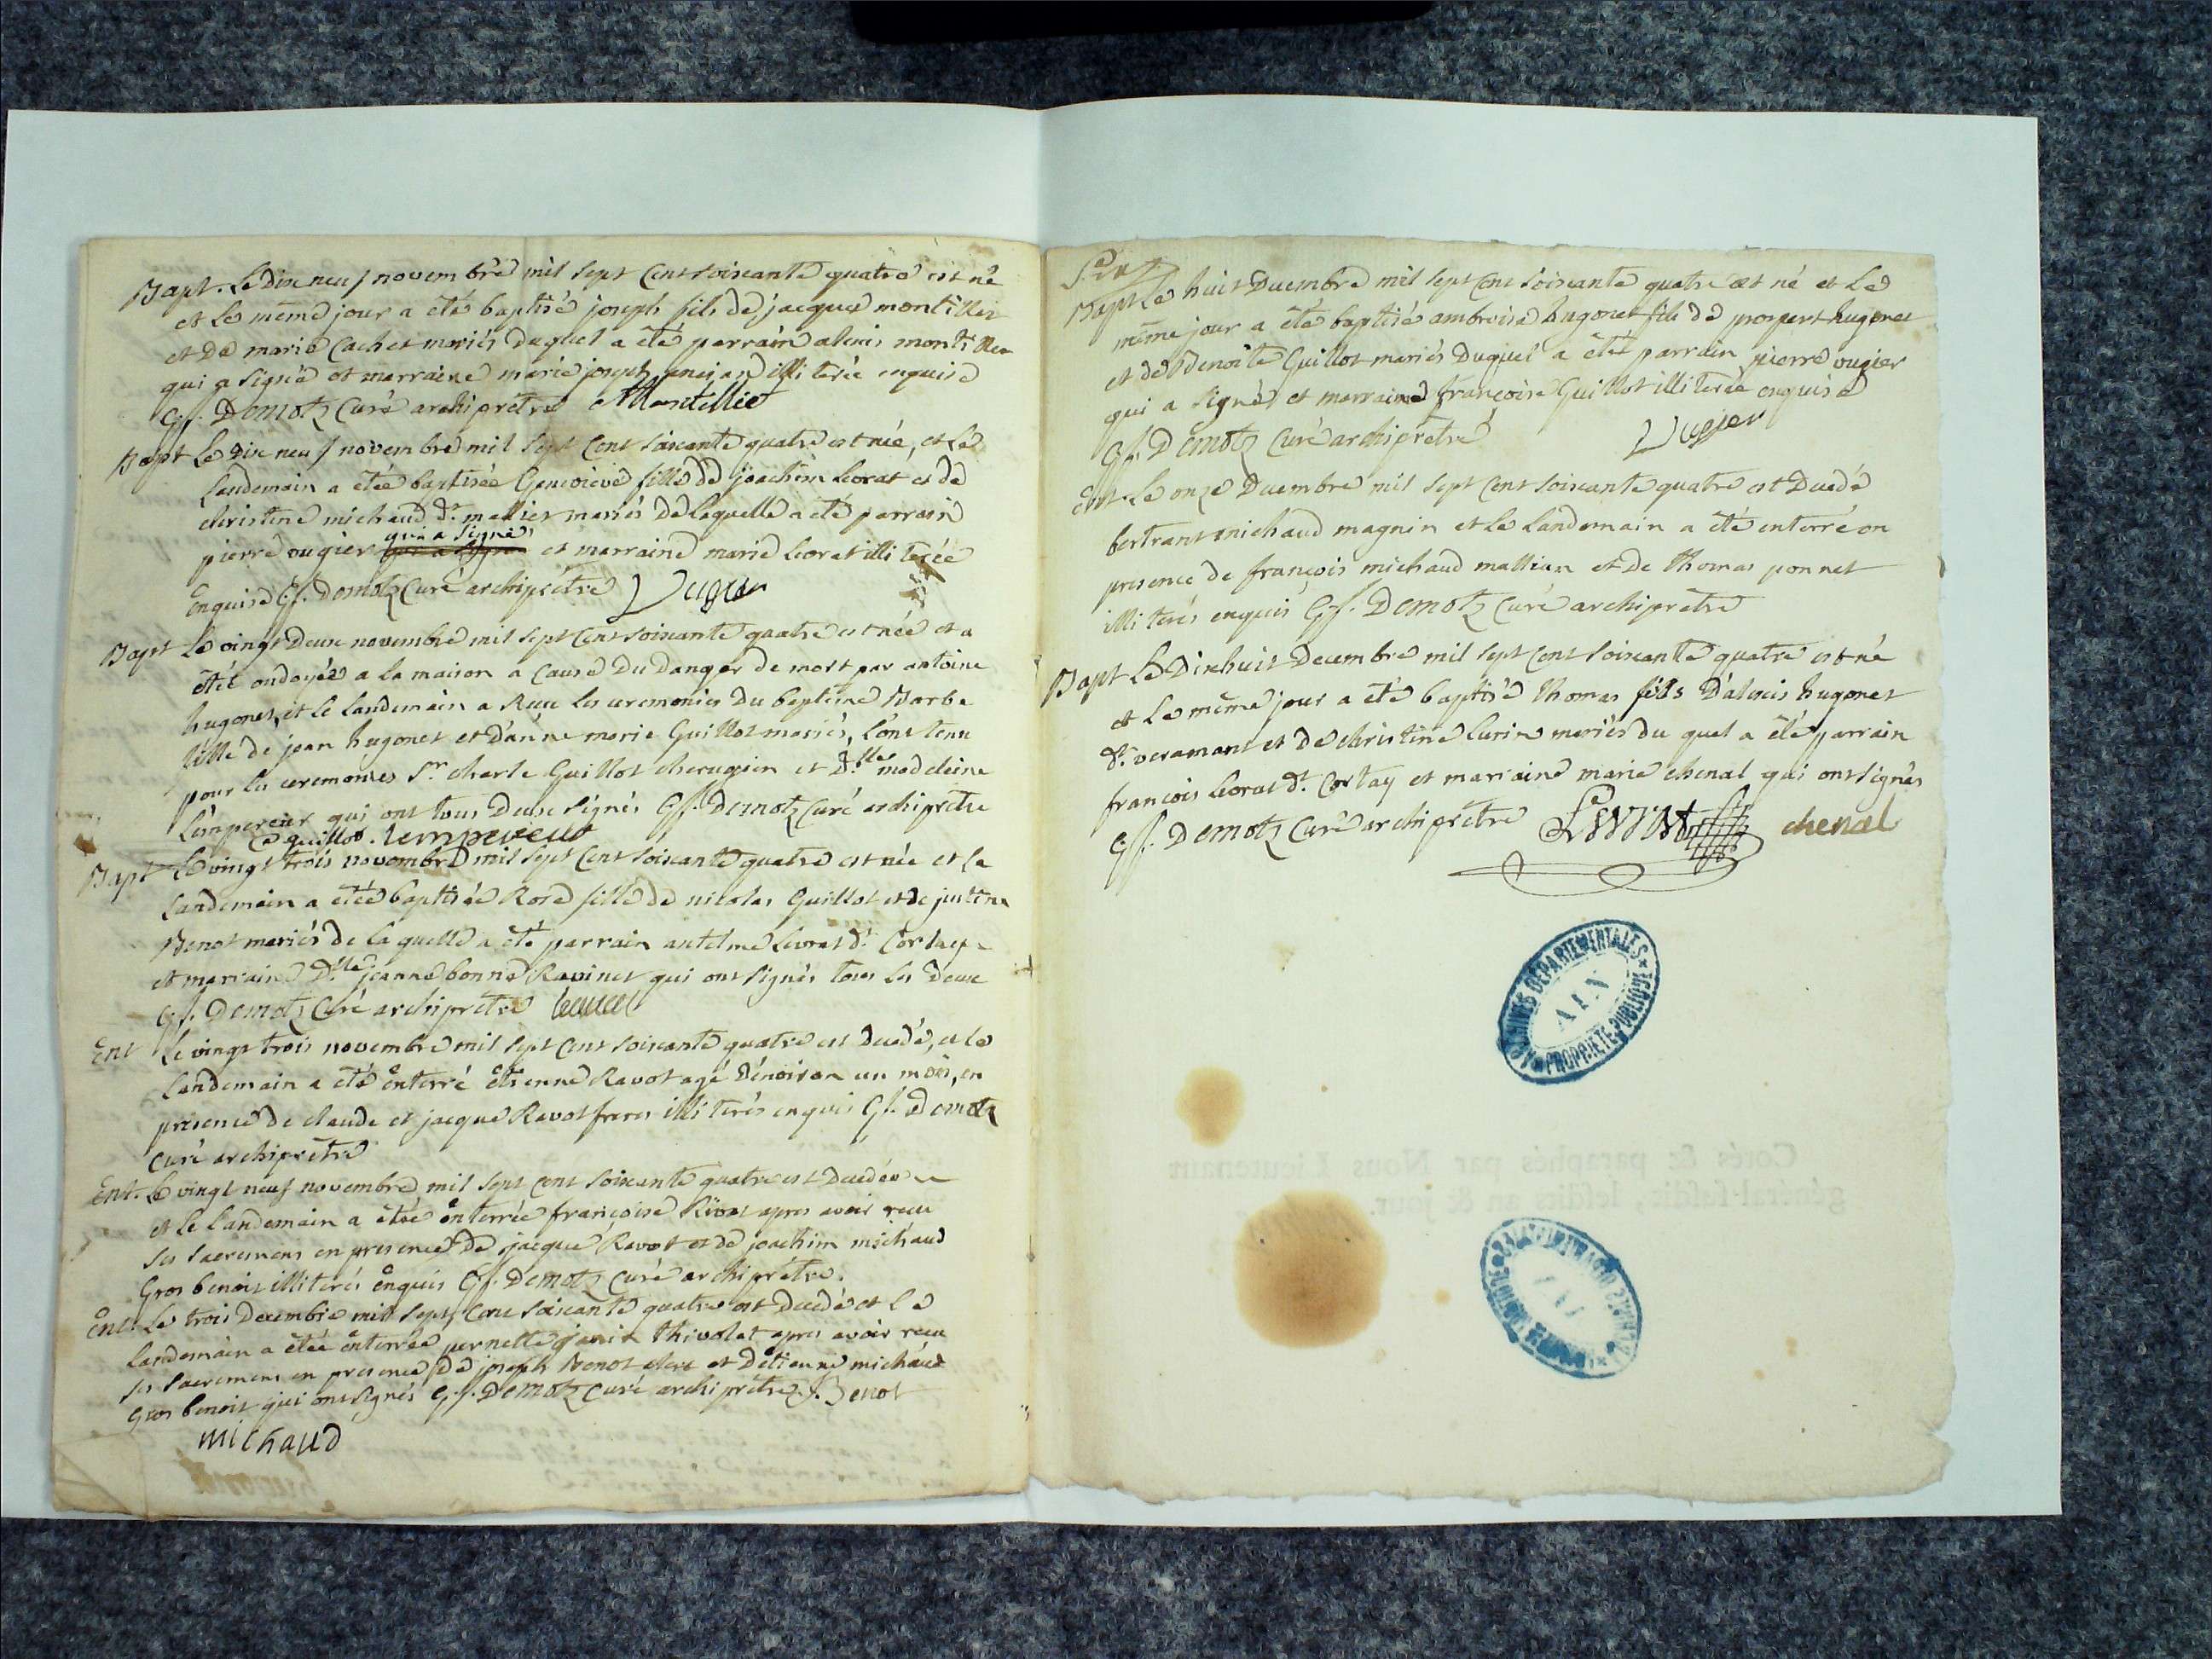 Bapt. Le Dix neuf novembre mil sept Cent soixante quatre est né
et Le même jour a été baptisé joseph fils de jacque montillet
et De marie Cachet mariés duquel a été parrain alexis montillet
qui a signé et marraine marie joseph illiterée enquise
Gf. Demotz Curé archiprêtre AMontillet
Bapt Le Dix neuf novembre mil sept Cent soixante quatre est née, et Le
Landemain a étée baptisée Genevieve fille de joachim Livrat et de
christine michaud dt. mallict mariés De Laquelle a été parrain
qui a signé
pierre ougier et marraine marie Livrat illiterée
Enquise Gf. Demotz Curé archiprêtre Vugier
Bapt Le vingt Deux novembre mil sept Cent soixante quatre est née et a
étée ondoyée a la maison a Cause Du Danger de mort par antoine
hugonet, et le landemain a Reçu les ceremonies Du baptême Barbe
fille de jean hugonet et d'anne marie Guillot mariés, L'ont tenu
pour les ceremonies Sr. charle Guillot cherugien et D.lle madeleine
L'empereur qui ont tous Deux signés Gf. Demotz Curé archiprêtre
C guillot. lempereur
Bapt Le vingt trois novembre mil sept Cent soixante quatre est née et le
Landemain a étée baptisée Rose fille de nicolas Guillot et de justine
Benot mariés de la quelle a été parrain antelme Livrat dt. Cortay
et marraine D.lle jeanne bonne Ravinet qui ont signés tous les deux
Gf. Demotz Curé archiprêtre
Ent Le vingt trois novembre mil sept Cent soixante quatre est Decedé, et Le
Landemain a été enterré étienne Ravot agé D'environ un mois, en
presence de claude et jacque Ravot freres illiterés enquis Gf. Demotz
Curé archiprêtre
Ent. Le vingt neuf novembre mil sept Cent soixante quatre est Decedée
et Le Landemain a étée enterrée françoise Rivat apres avoir reçu
ses sacremens en presence de jacque Ravot et de joachim michaud
Gros benoit illiterés enquis Gf. Demotz Curé archiprêtre.
Ent. Le trois Decembre mil sept Cent soixante quatre est Decedé et Le
Landemain a étée enterrée pernette janin thivolet apres avoir reçu
ses sacremens en presence de joseph Benot clerc et D'étienne michaud
Gros benoit qui ont signés Gf. Demotz Curé archiprêtre J. Benot
michaud
Bapt Le huit Decembre mil sept Cent soixante quatre est né et Le
même jour a été baptisé ambroise hugonet fils de prospert hugonet
et de Benoite Guillot mariés Duquel a été parrain pierre ougier
qui a signé et marraine françoise Guillot illiterée enquise
Gf. Demotz Curé archiprêtre Vugier
Ent. Le onze Decembre mil sept Cent soixante quatre est Decedé
bertrant michaud magnin et Le Landemain a été enterré en
presence de françois michaud mallian et De thomas ponnet
illiterés enquis Gf. Demotz Curé archiprêtre
Bapt Le Dixhuit Decembre mil sept Cent soixante quatre est né
et Le même jour a été baptisé thomas fils D'alexis hugonet
dt. veramant et De christine Curin mariés du quel a été parrain
francois Livrat dt. Cortay et marraine marie chenal qui ont signés
Gf. Demotz Curé archiprêtre Livrat chenal
ARCHIVES DÉPARTEMENTALES
AIN
PROPRIÉTÉ PUBLIQUE
Cotés & paraphés par Nous Lieutenant
général susdit, lesdits an & jour.